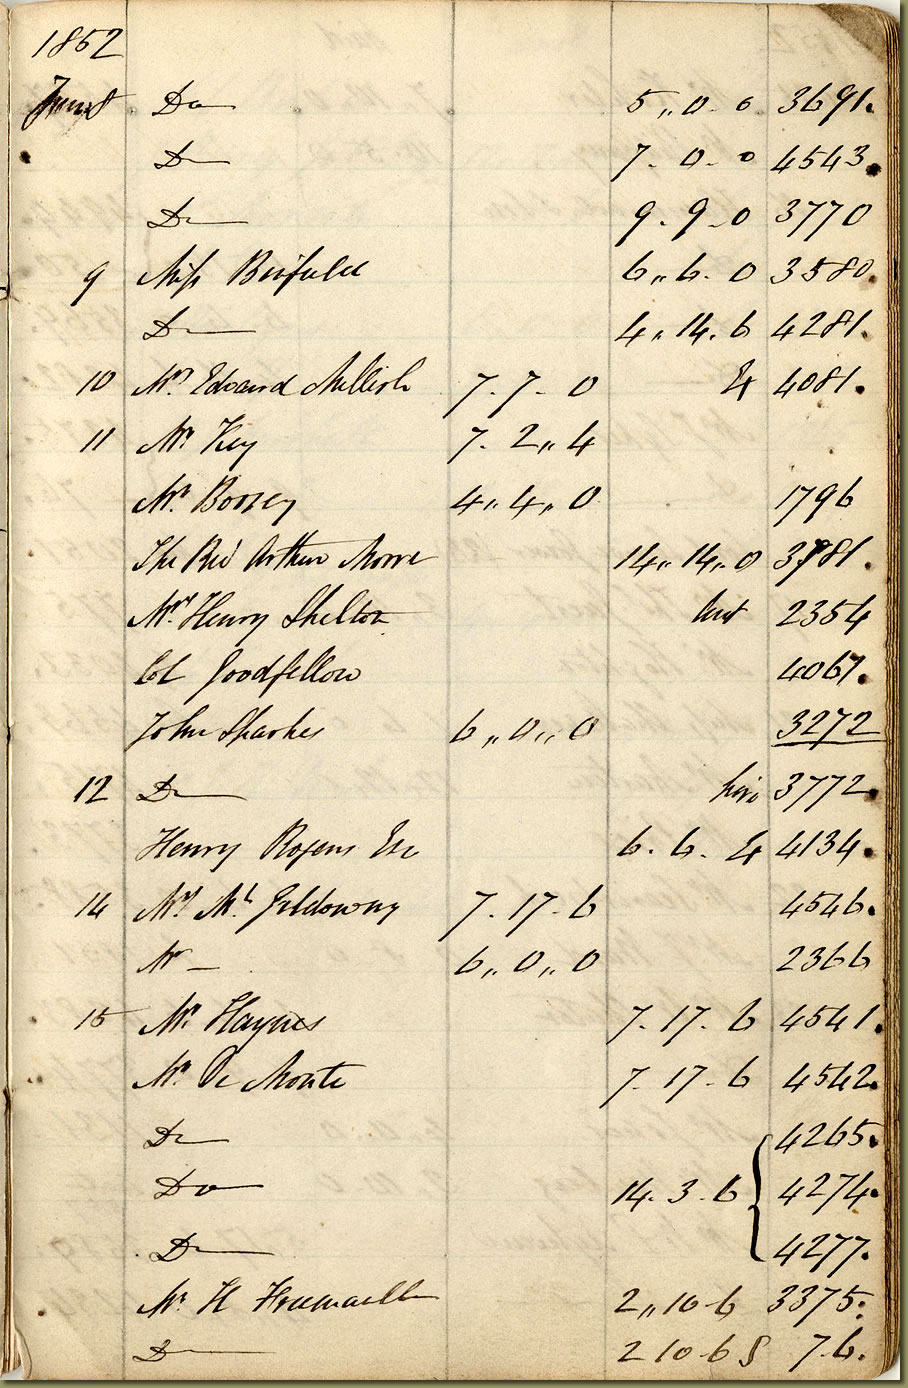 1852
June 8 Do 5,, 0. 0 3691.
Do 7. 0. 0 4543.
Do 9. 9. 0 3770
9 Miss Binfield 6,, 6. 0 3580.
Do 4,, 14. 6 4281.
10 Mr. Edward Mellish 7. 7. 0 4081.
11 Mr Key 7. 2,, 4
Mr. Boosey 4,, 4,, 0 1796
The Revd Arthur 14,, 14,, 0 3781.
Mr. Henry Shelton 2354
Col Goodfellow 4067.
John Sharkes 6,, 0,, 0 3272
12 Do hire 3772.
Henry Rogers Esq 6. 6. 4134.
14 7. 17. 6 4546.
Mr — 6,, 0,, 0 2366
15 Mr. Haynes 7. 17. 6 4541.
Mr. De Monte 7. 17. 6 4542.
Do 4265.
Do 14. 3. 6 4274.
Do 4277.
Mr. H 2,, 10 6 3375.
Do 2 10 6 7.6.